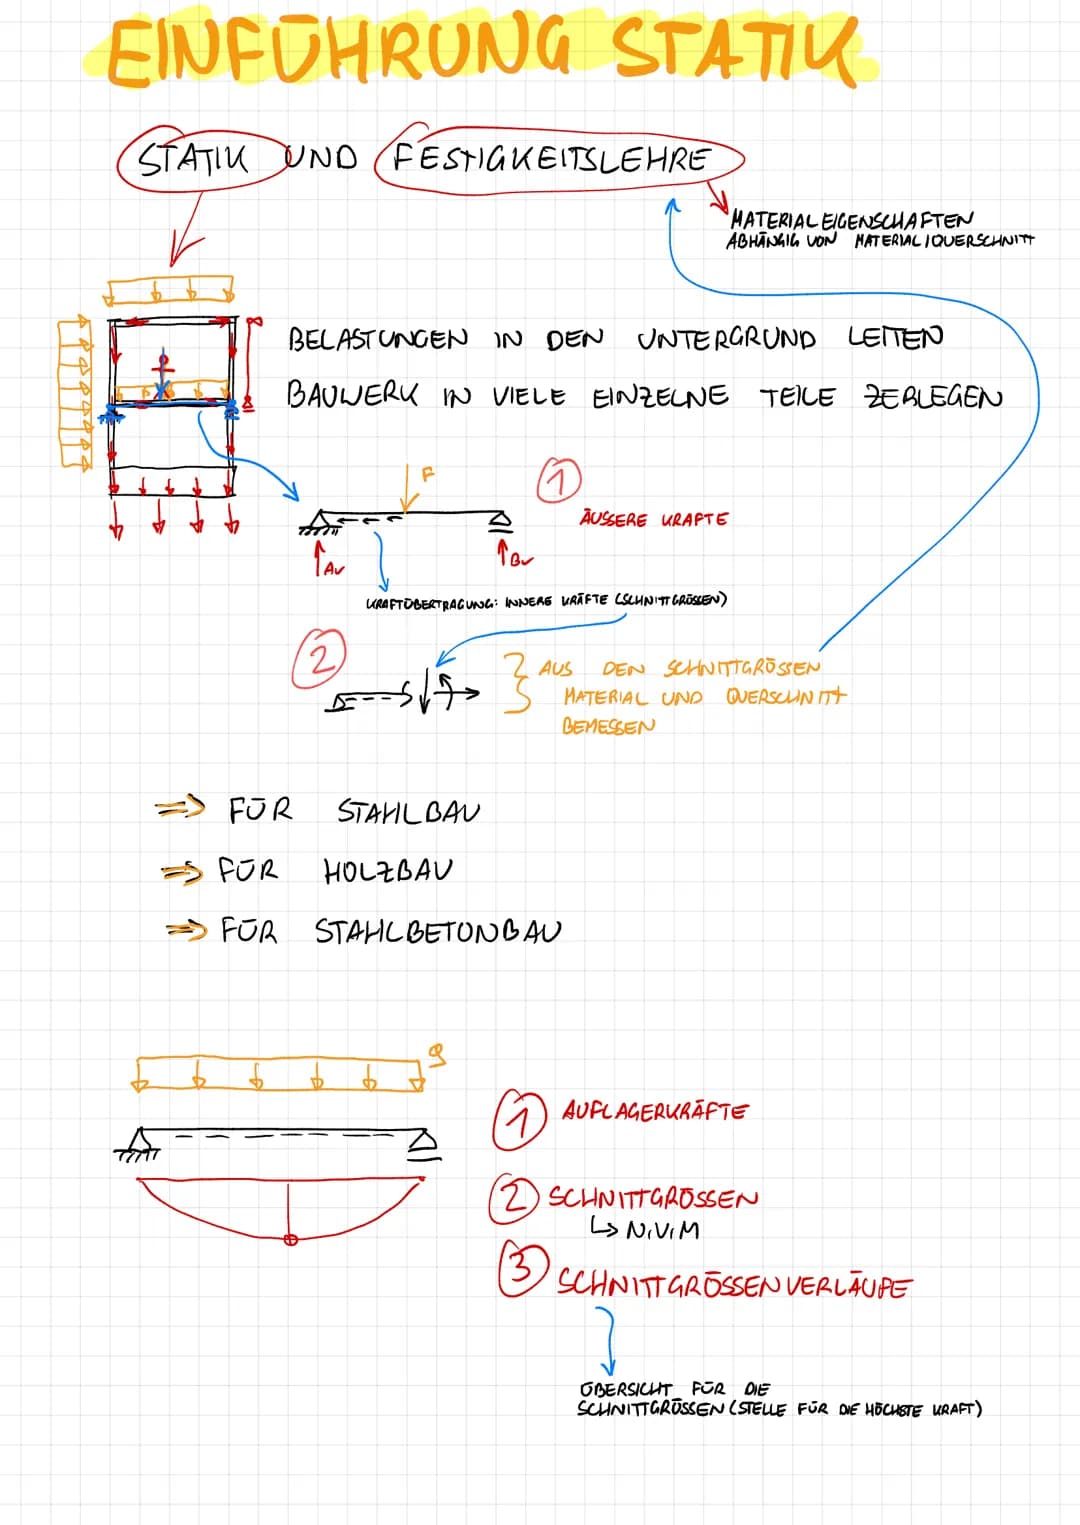 EINFÜHRUNG STATIK
STATIK UND FESTIGKEITSLEHRE
MATERIALEIGENSCHAFTEN
ABHÄNGIG VON MATERIAL/QUERSCHNITT
BELASTUNGEN IN DEN UNTERGRUND LEITEN
BAUWERK IN VIELE EINZELNE TEILE ZERLEGEN
F
1
ÄUSSERE KRÄFTE
Av
Bv
KRAFTÜBERTRAGUNG: INNERE KRÄFTE (SCHNITTGRÖSSEN)
2
AUS DEN SCHNITTGRÖSSEN
MATERIAL UND QUERSCHNITT
BEMESSEN
=> FÜR STAHLBAU
=> FÜR HOLZBAU
=> FÜR STAHLBETONBAU
q
1 AUFLAGERKRÄFTE
2 SCHNITTGRÖSSEN
↳ N,V,M
3 SCHNITTGRÖSSENVERLÄUFE
ÜBERSICHT FÜR DIE
SCHNITTGRÖSSEN (STELLE FÜR DIE HÖCHSTE KRAFT)